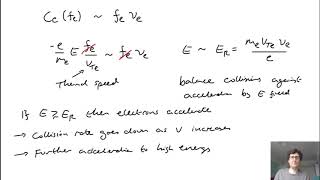 Ce(fe) ~ fe νe
-e/me E fe/vTe ~ fe νe
E ~ ER = me vTe νe / e
Thermal speed
balance collisions against
acceleration by E field
If E ≥ ER then electrons accelerate
→ Collision rate goes down as v increases
→ Further acceleration to high energy